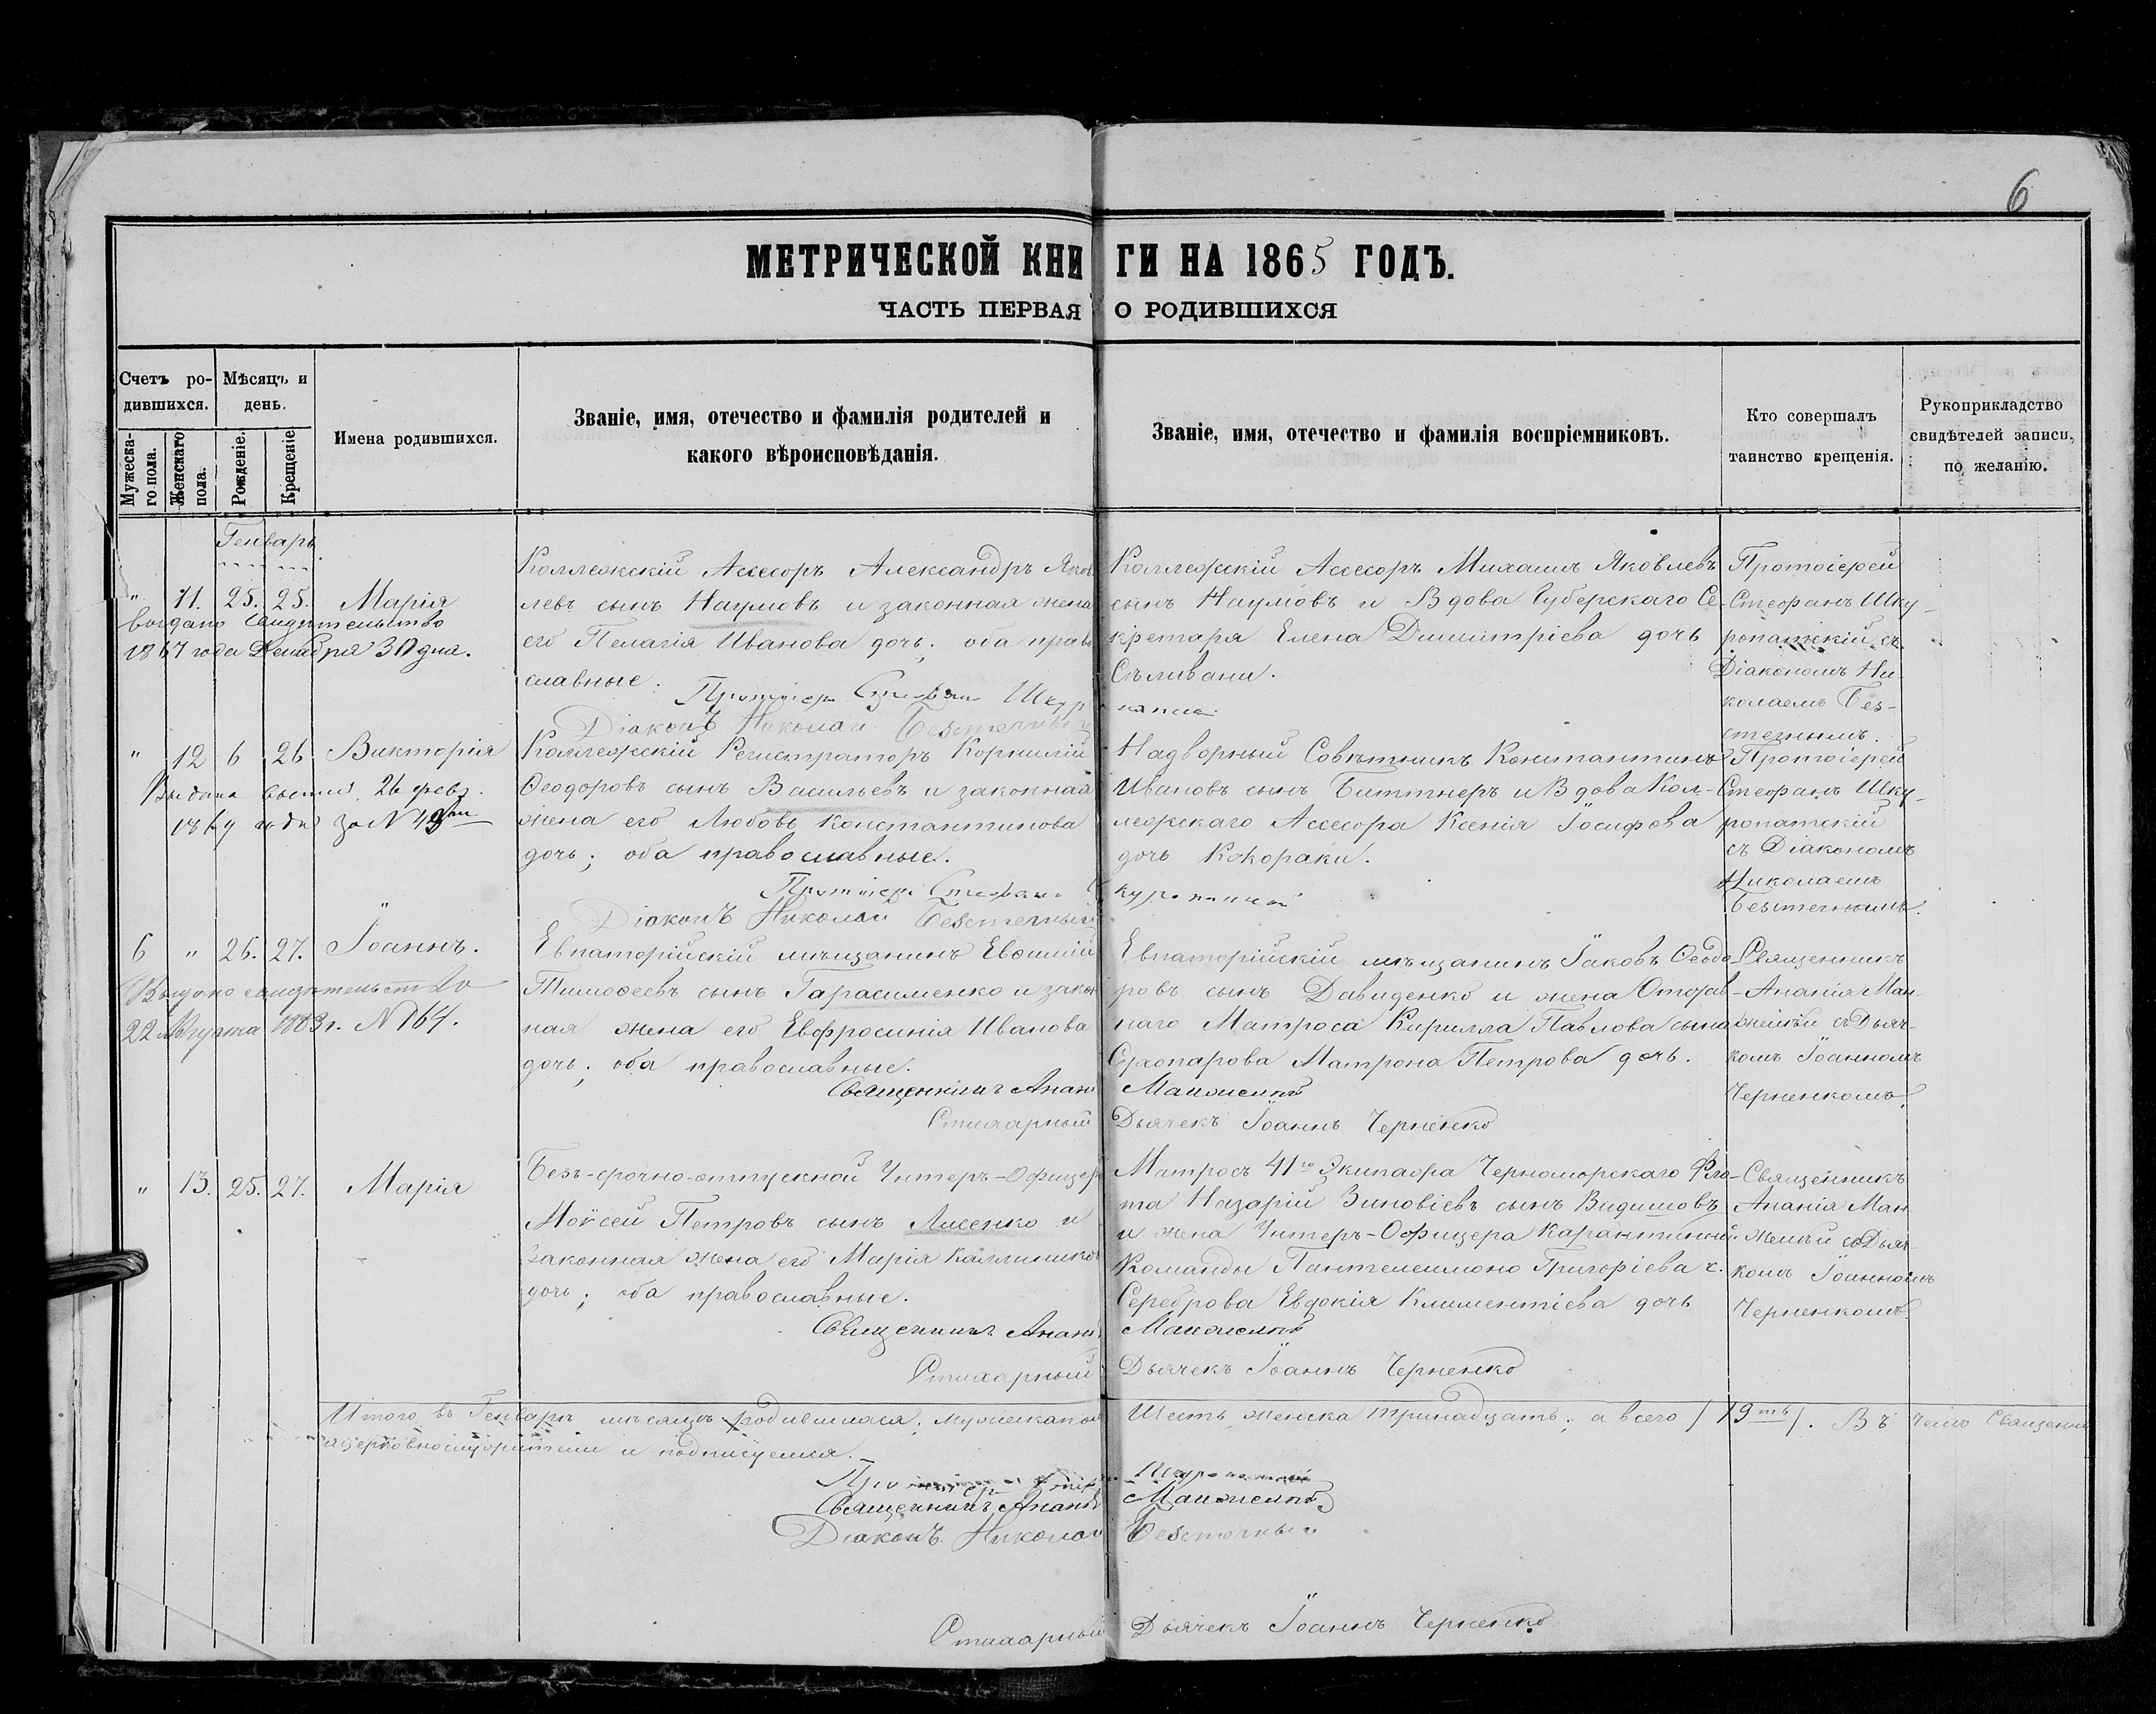 6
МЕТРИЧЕСКОЙ КНИГИ НА 1865 ГОДЪ.
ЧАСТЬ ПЕРВАЯ О РОДИВШИХСЯ
Счетъ родившихся.
Мужескаго пола.
Женскаго пола.
Мѣсяцъ и день.
Рожденіе.
Крещеніе.
Имена родившихся.
Званіе, имя, отечество и фамилія родителей и
какого вѣроисповѣданія.
Званіе, имя, отечество и фамилія воспріемниковъ.
Кто совершалъ
таинство крещенія.
Рукоприкладство
свидѣтелей записи,
по желанію.
Генварь
" 11. 25. 25. Марія
выдано свидѣтельство
1867 года Декабря 30 дня.
Коллежскій Ассесоръ Александръ Яков
левъ сынъ Наумовъ и законная жена
его Пелагія Иванова дочь; оба право
славные.
Коллежскій Ассесоръ Михаилъ Яковлевъ
сынъ Наумовъ и Вдова Губерскаго Се-
кретаря Елена Димитріева дочь
Съливани.
Протоіерей
Стефанъ Шку-
ропатскій съ
Діакономъ Ни-
колаемъ Без-
стечнымъ.
Протоіерей Стефанъ Шкуропатскій
Діаконъ Николай Безстечный
" 12 6 26 Викторія
Выдана 26 февр.
Коллежскій Регистраторъ Корнилій
Ѳеодоровъ сынъ Васильевъ и законная
жена его Любовь Константинова
дочь; оба православные.
Надворный Совѣтникъ Константинъ
Ивановъ сынъ Биттнеръ и Вдова Кол-
лежскаго Ассесора Ксенія Іосифова
дочь Кокораки.
Протоіерей
Стефанъ Шку-
ропатскій
съ Діакономъ
Николаемъ
Безстечнымъ.
Протоіерей Стефанъ Шкуропатскій
Діаконъ Николай Безстечный
6 " 26. 27. Іоаннъ.
Выдано свидѣтельство
22 Августа 1883 г. N 164.
Евпаторійскій мѣщанинъ Евѳимій
Тимоѳеевъ сынъ Гарасименко и закон
ная жена его Евфросинія Иванова
дочь; оба православные.
Евпаторійскій мѣщанинъ Іаковъ Ѳеодо-
ровъ сынъ Давиденко и жена Отстав-
наго Матроса Кирилла Павлова сына
Матрона Петрова дочь.
Священникъ
Ананія Ман-
желѣй съ Дьяч-
комъ Іоанномъ
Черненкомъ.
Священникъ Ананія Манжелѣй
Стихарный Дьячекъ Іоаннъ Черненко
" 13. 25. 27. Марія
Безъ-срочно-отпускной Унтеръ-Офицеръ
Моѵсей Петровъ сынъ Лисенко и
законная жена его Марія Каллиникова
дочь; оба православные.
Матросъ 41го Экипажа Черноморскаго Фло-
та Назарій Зиновіевъ сынъ Видишовъ
и жена Унтеръ-Офицера Карантинной
Команды Пантелеимона Григоріева с.
Сереброва Евдокія Климентіева дочь
Священникъ
Ананія Ман-
желѣй съ Дьяч-
комъ Іоанномъ
Черненкомъ.
Священникъ Ананія Манжелѣй
Стихарный Дьячекъ Іоаннъ Черненко
Итого въ Генварѣ мѣсяцѣ родившихся; мужеска пола Шесть женска тринадцать; а всего /19ть/. Въ чемъ Священно
и церковнослужители и подписуемся.
Протоіерей Стефанъ Шкуропатскій
Священникъ Ананія Манжелѣй
Діаконъ Николай Безстечный
Стихарный Дьячекъ Іоаннъ Черненко